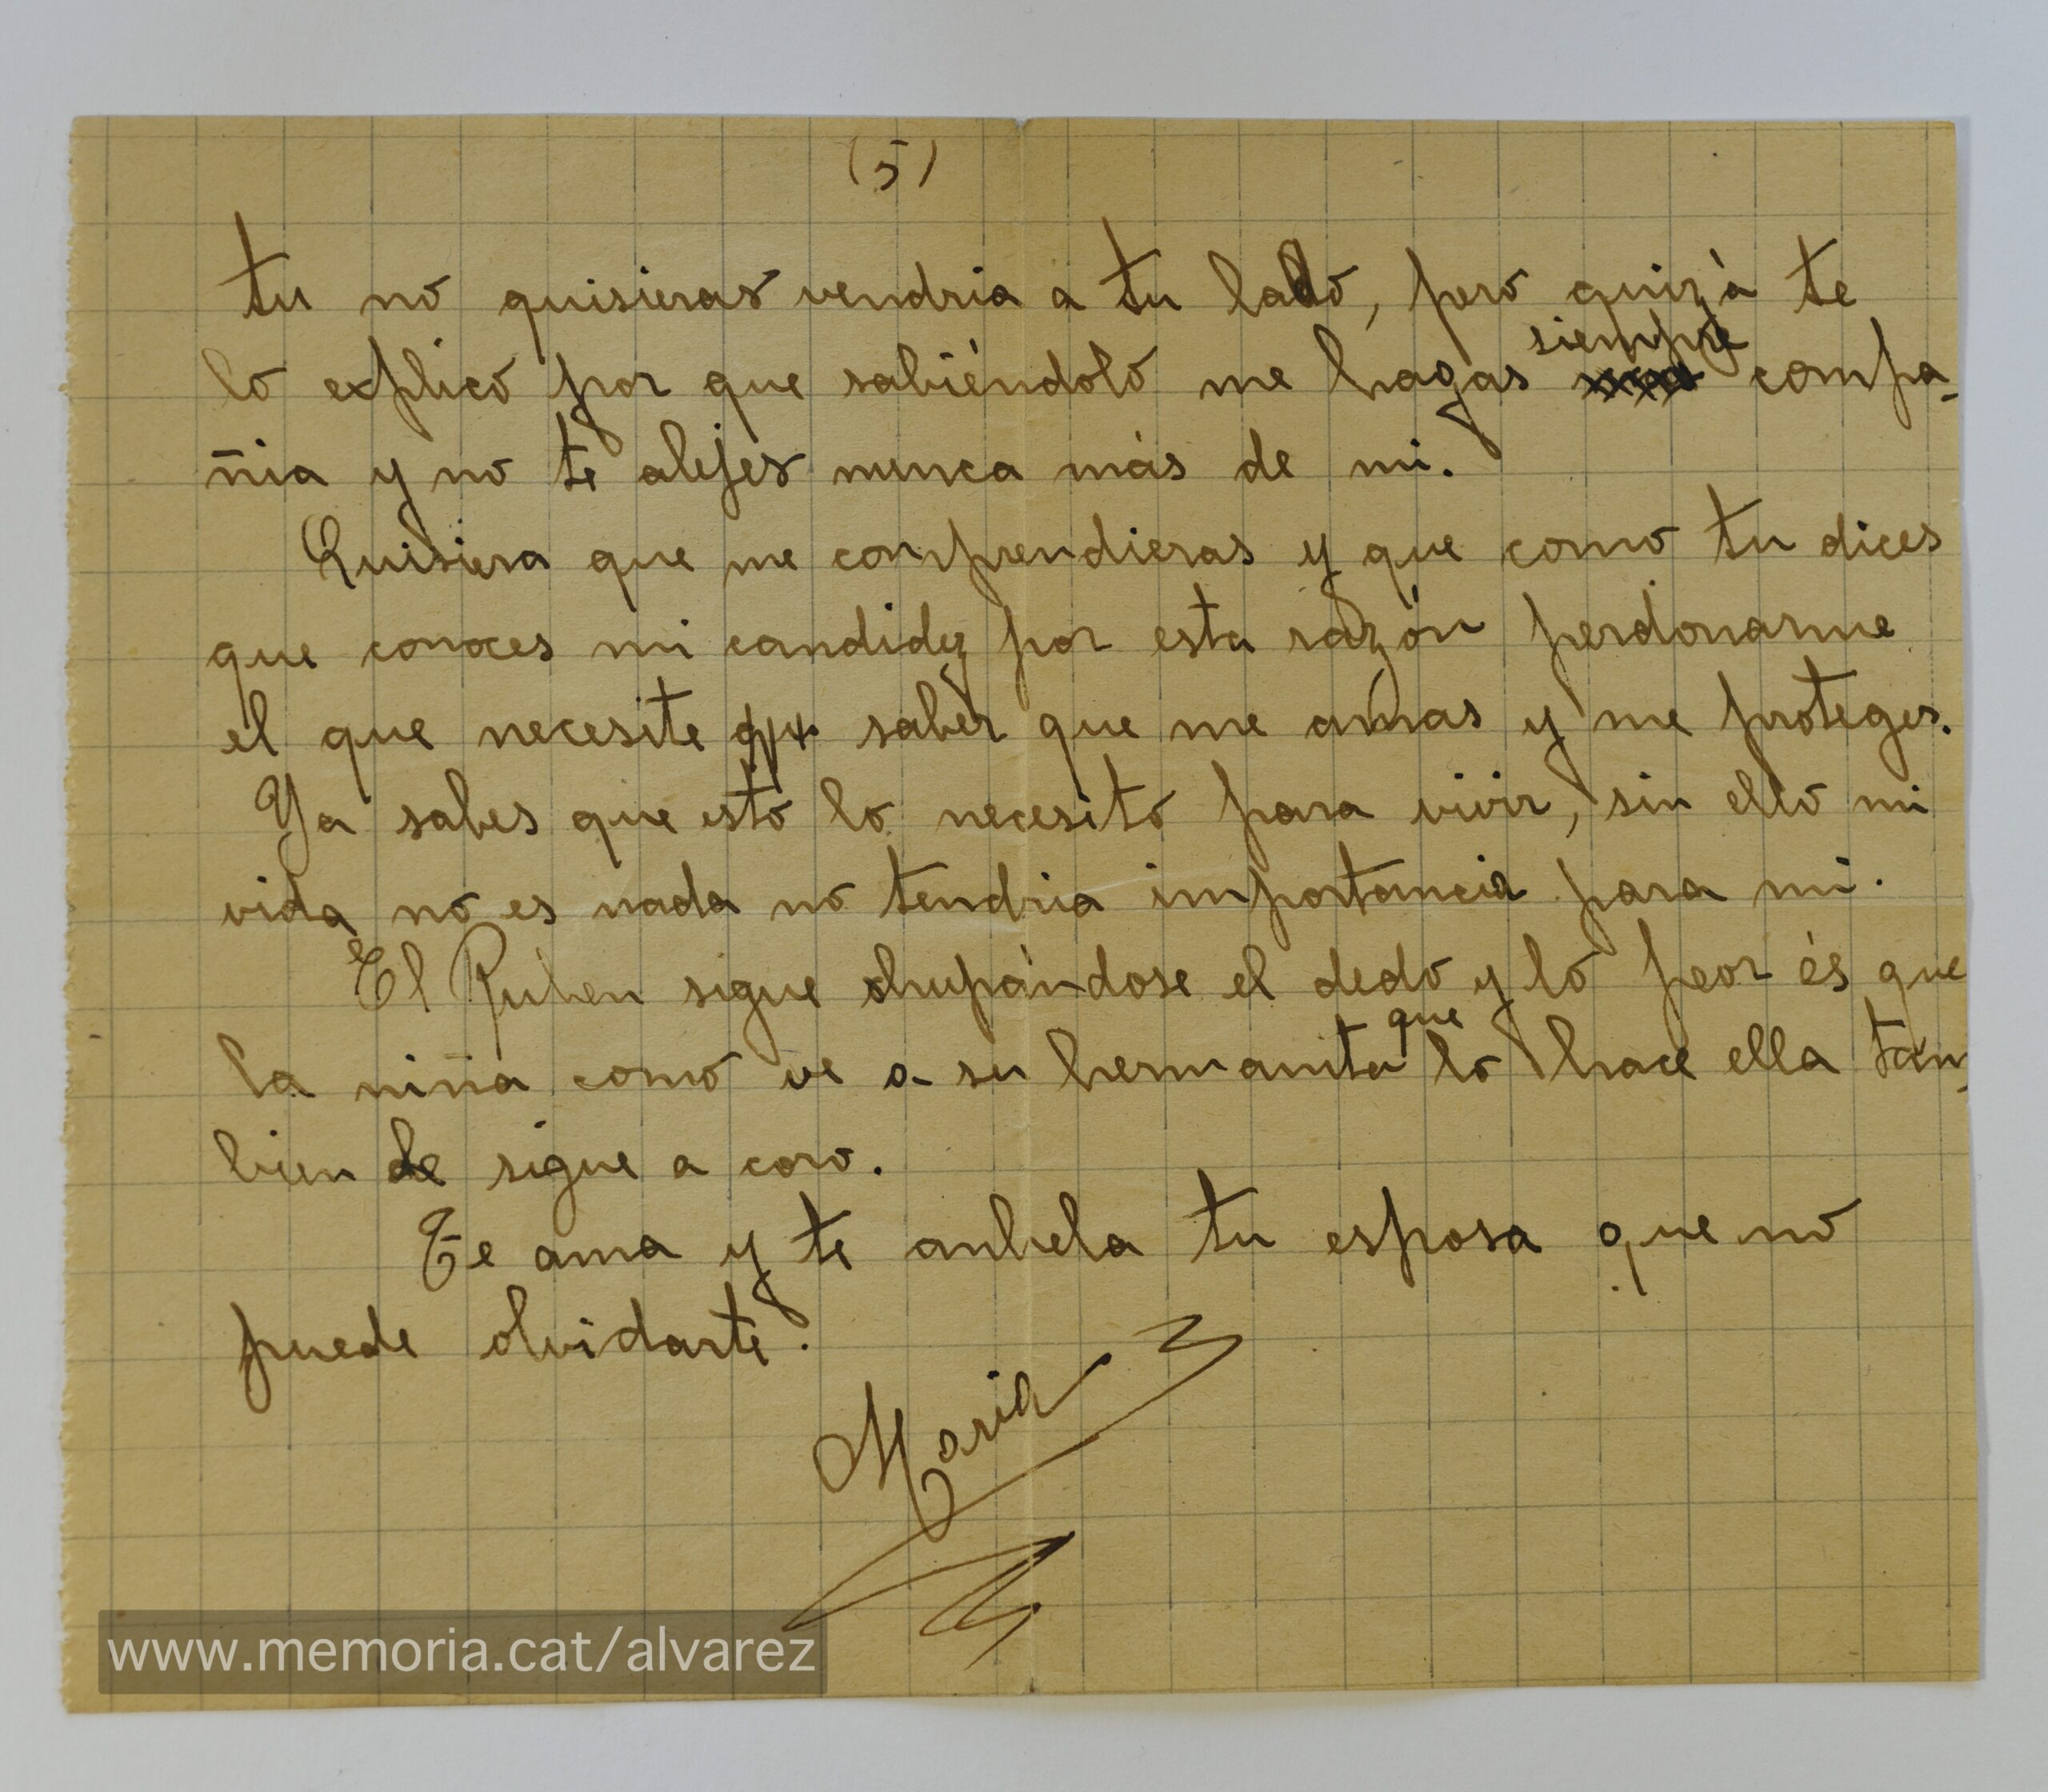 (5)
tu no quisieras vendria a tu lado, pero quizà te
lo explico por que sabiéndolo me hagas siempre compa-
ñia y no te alejes nunca más de mi.
Quisiera que me comprendieras y que como tu dices
que conoces mi candidez por esta razón perdonarme
el que necesite que saber que me amas y me proteges.
Ya sabes que esto lo necesito para vivir, sin ello mi
vida no es nada no tendria importancia para mi.
El Ruben sigue chupándose el dedo y lo peor és que
la niña como ve a su hermanita que lo hace ella tam-
bien le sigue a coro.
Te ama y te anhela tu esposa que no
puede olvidarte.
Maria
www.memoria.cat/alvarez